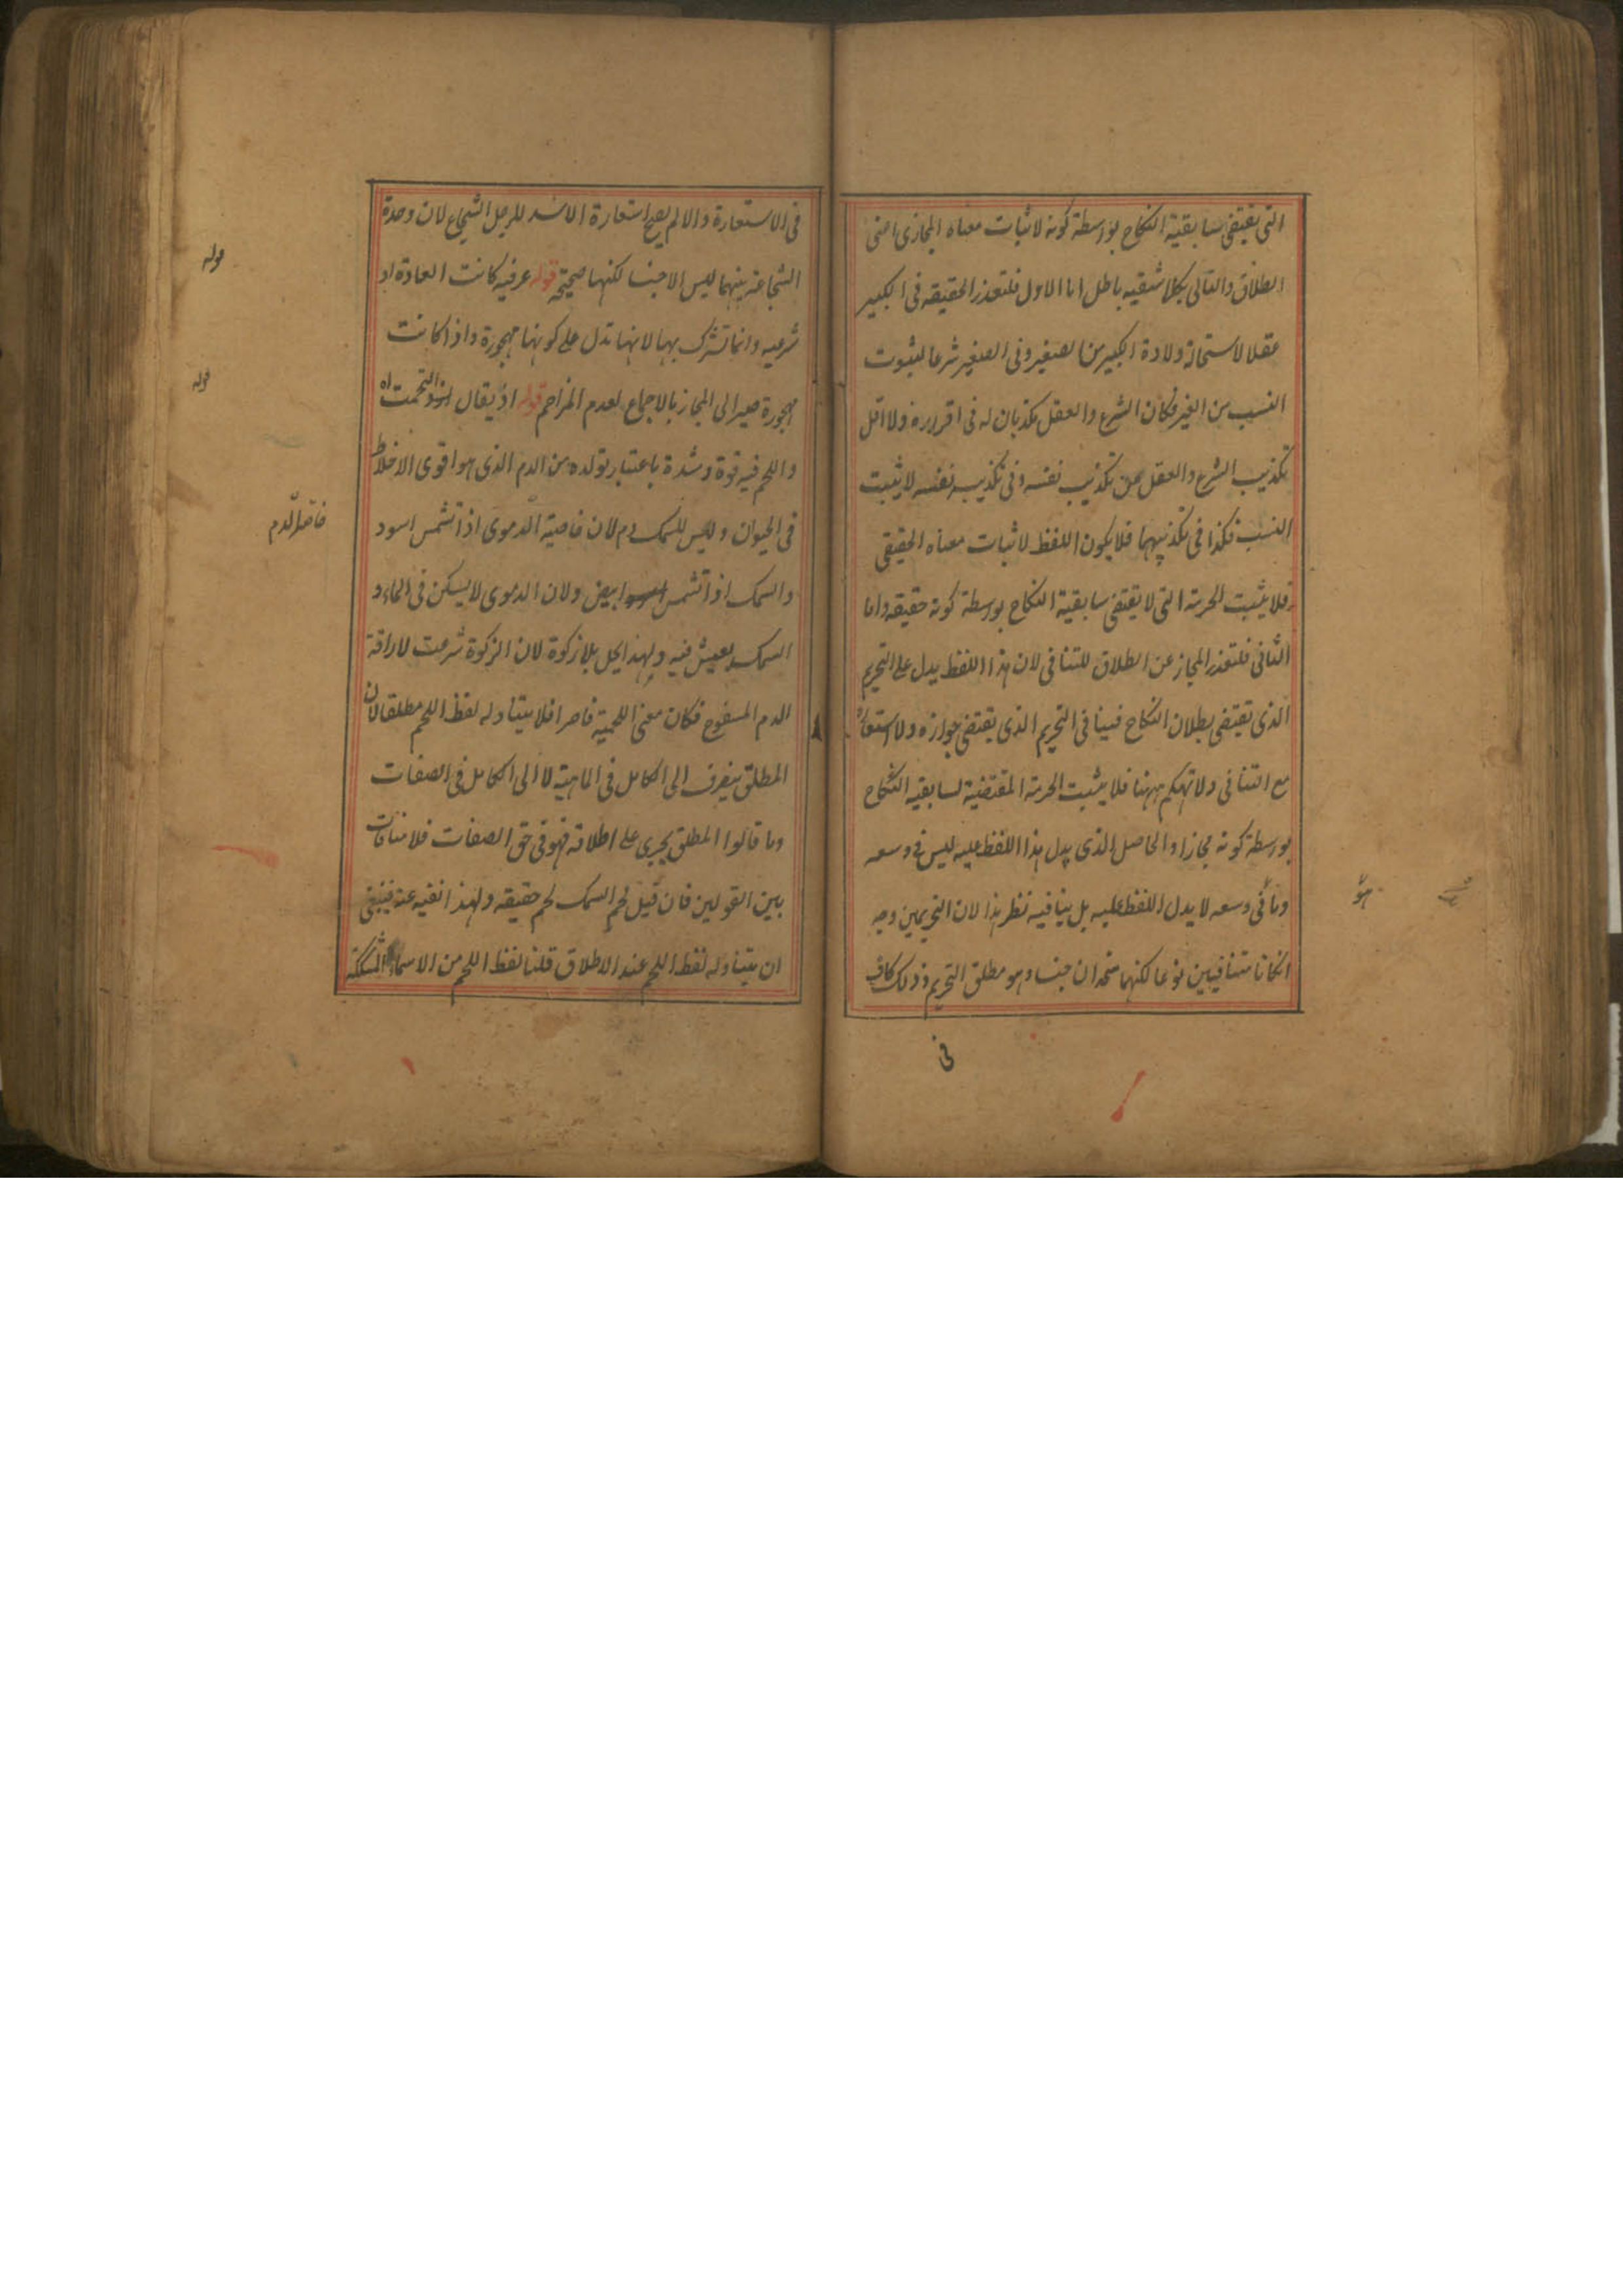 التى يقتضى سابقية النكاح بواسطة كونه لاثبات معناه المجازى اعنى
الطلاق والتالى بكلا شقيه باطل اما الاول فلتعذر الحقيقة فى الكبير
عقلا لاستحالة ولادة الكبير من الصغير وفى الصغير شرعا لثبوت
النسب من الغير فكان الشرع والعقل يكذبان له فى اقراره ولا اقل
تكذيب الشرع والعقل من تكذيب نفسه وفى تكذيب نفسه لا يثبت
النسب فكذا فى تكذيبهما فلا يكون اللفظ لاثبات معناه الحقيقى
فلا يثبت الحرمة التى لا يقتضى سابقية النكاح بواسطة كونه حقيقة واما
الثانى فلتعذر المجاز عن الطلاق للتنافى لان هذا اللفظ يدل على التحريم
الذى يقتضى بطلان النكاح فينافى التحريم الذى يقتضى جوازه ولا استعارة
مع التنافى ولا تهكم ههنا فلا يثبت الحرمة المقتضية لسابقية النكاح
بواسطة كونه مجازا والحاصل الذى يدل هذا اللفظ عليه ليس فى وسعه
وما فى وسعه لا يدل اللفظ عليه بل ينافيه نظر هذا لان التحريمين وجه
انكانا متنافيين نوعا لكنهما متحدان جنسا وهو مطلق التحريم وذلك كاف
فى
هو
فى الاستعارة والا لم يصح استعارة الاسد للرجل الشجاع لان وحدة
الشجاعة بينهما ليس الا جنسا لكنها صحيحة قوله عرفية كانت العادة او
شرعيه وانما تترك بها لانها تدل على كونها مهجورة واذا كانت
مهجورة صير الى المجاز بالاجماع لعدم المزاحم قوله اذ يقال التحمت اه
واللحم فيه قوة وشدة باعتبار تولده من الدم الذى هو اقوى الاخلاط
فى الحيوان وليس للسمك دم لان خاصية الدموى اذا تشمس اسود
والسمك اذا تشمس ابيض ولان الدموى لا يسكن فى الماء و
السمك يعيش فيه ولهذا يحل بلا زكوة لان الزكوة شرعت لاراقة
الدم المسفوح فكان معنى اللحمية قاصرا فلا يتناوله لفظ اللحم مطلقا لان
المطلق ينصرف الى الكامل فى الماهية لا الى الكامل فى الصفات
وما قالوا المطلق يجرى على اطلاقه فهو فى حق الصفات فلا منافات
بين القولين فان قيل لحم السمك لحم حقيقة ولهذا نفيه عنه فينبغى
ان يتناوله لفظ اللحم عند الاطلاق قلنا لفظ اللحم من الاسماء المشككة
قوله
قوله